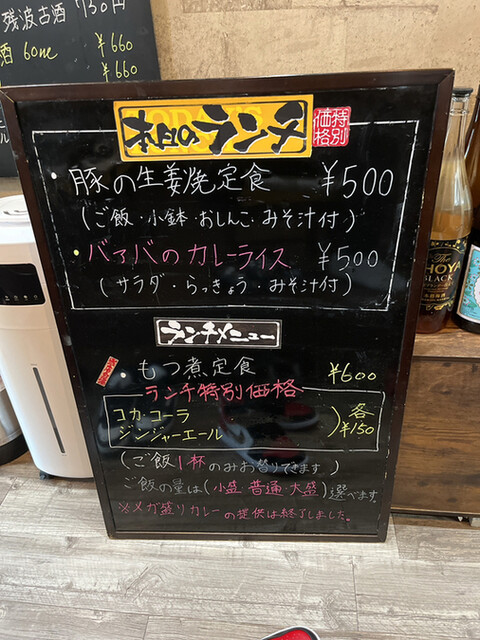 残波古酒 750円
酒 60ml ¥660
¥660
本日のランチ
特別価格
・豚の生姜焼定食 ¥500
(ご飯・小鉢・おしんこ・みそ汁付)
・バァバのカレーライス ¥500
(サラダ・らっきょう・みそ汁付)
ランチメニュー
・もつ煮定食 ¥600
ランチ特別価格
コカ・コーラ
ジンジャーエール
各¥150
(ご飯1杯のみお替りできます)
ご飯の量は(小盛・普通・大盛)選べます。
※メガ盛りカレーの提供は終了しました。
The
BLACK